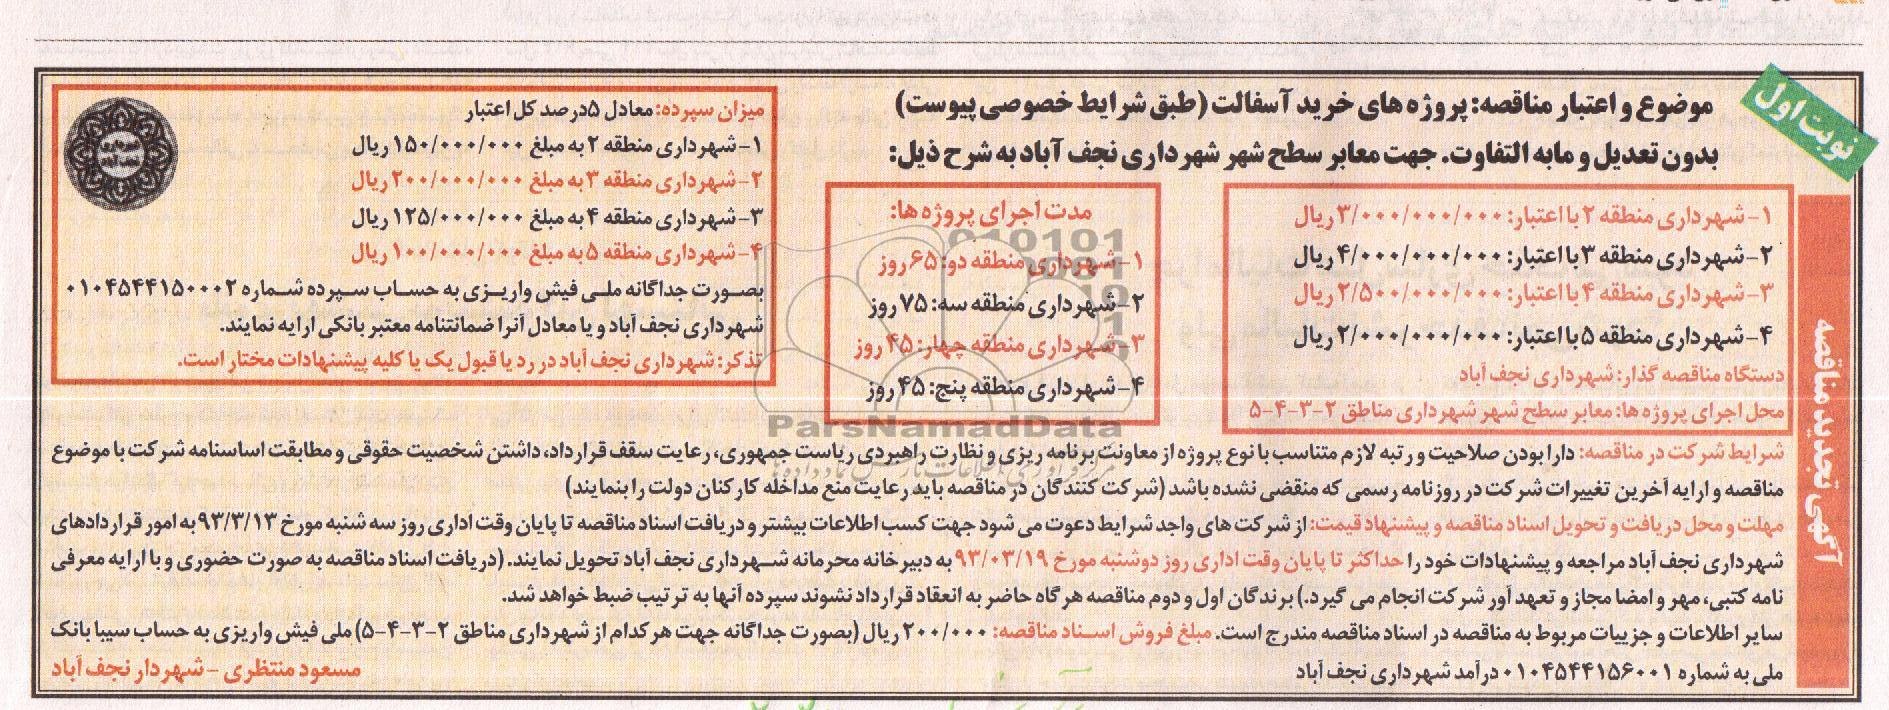 نوبت اول
آگهی تجدید مناقصه
موضوع و اعتبار مناقصه: پروژه های خرید آسفالت (طبق شرایط خصوصی پیوست)
بدون تعدیل و مابه التفاوت. جهت معابر سطح شهر شهرداری نجف آباد به شرح ذیل:
۱- شهرداری منطقه ۲ با اعتبار: ۳/۰۰۰/۰۰۰/۰۰۰ ریال
۲- شهرداری منطقه ۳ با اعتبار: ۴/۰۰۰/۰۰۰/۰۰۰ ریال
۳- شهرداری منطقه ۴ با اعتبار: ۲/۵۰۰/۰۰۰/۰۰۰ ریال
۴- شهرداری منطقه ۵ با اعتبار: ۲/۰۰۰/۰۰۰/۰۰۰ ریال
دستگاه مناقصه گذار: شهرداری نجف آباد
محل اجرای پروژه ها: معابر سطح شهر شهرداری مناطق ۲-۳-۴-۵
مدت اجرای پروژه ها:
۱- شهرداری منطقه دو: ۶۵ روز
۲- شهرداری منطقه سه: ۷۵ روز
۳- شهرداری منطقه چهار: ۴۵ روز
۴- شهرداری منطقه پنج: ۴۵ روز
میزان سپرده: معادل ۵ درصد کل اعتبار
۱- شهرداری منطقه ۲ به مبلغ ۱۵۰/۰۰۰/۰۰۰ ریال
۲- شهرداری منطقه ۳ به مبلغ ۲۰۰/۰۰۰/۰۰۰ ریال
۳- شهرداری منطقه ۴ به مبلغ ۱۲۵/۰۰۰/۰۰۰ ریال
۴- شهرداری منطقه ۵ به مبلغ ۱۰۰/۰۰۰/۰۰۰ ریال
بصورت جداگانه ملی فیش واریزی به حساب سپرده شماره ۰۱۰۴۵۴۴۱۵۰۰۰۲
شهرداری نجف آباد و یا معادل آنرا ضمانتنامه معتبر بانکی ارایه نمایند.
تذکر: شهرداری نجف آباد در رد یا قبول یک یا کلیه پیشنهادات مختار است.
شهرداری نجف آباد
ParsNamadData
شرایط شرکت در مناقصه: دارا بودن صلاحیت و رتبه لازم متناسب با نوع پروژه از معاونت برنامه ریزی و نظارت راهبردی ریاست جمهوری، رعایت سقف قرارداد، داشتن شخصیت حقوقی و مطابقت اساسنامه شرکت با موضوع
مناقصه و ارایه آخرین تغییرات شرکت در روزنامه رسمی که منقضی نشده باشد (شرکت کنندگان در مناقصه باید رعایت منع مداخله کارکنان دولت را بنمایند)
مهلت و محل دریافت و تحویل اسناد مناقصه و پیشنهاد قیمت: از شرکت های واجد شرایط دعوت می شود جهت کسب اطلاعات بیشتر و دریافت اسناد مناقصه تا پایان وقت اداری روز سه شنبه مورخ ۹۳/۳/۱۳ به امور قراردادهای
شهرداری نجف آباد مراجعه و پیشنهادات خود را حداکثر تا پایان وقت اداری روز دوشنبه مورخ ۹۳/۰۳/۱۹ به دبیرخانه محرمانه شهرداری نجف آباد تحویل نمایند. (دریافت اسناد مناقصه به صورت حضوری و با ارایه معرفی
نامه کتبی، مهر و امضا مجاز و تعهد آور شرکت انجام می گیرد.) برندگان اول و دوم مناقصه هرگاه حاضر به انعقاد قرارداد نشوند سپرده آنها به ترتیب ضبط خواهد شد.
سایر اطلاعات و جزییات مربوط به مناقصه در اسناد مناقصه مندرج است. مبلغ فروش اسناد مناقصه: ۲۰۰/۰۰۰ ریال (بصورت جداگانه جهت هرکدام از شهرداری مناطق ۲-۳-۴-۵) ملی فیش واریزی به حساب سیبا بانک
ملی به شماره ۰۱۰۴۵۴۴۱۵۶۰۰۱ درآمد شهرداری نجف آباد
مسعود منتظری - شهردار نجف آباد